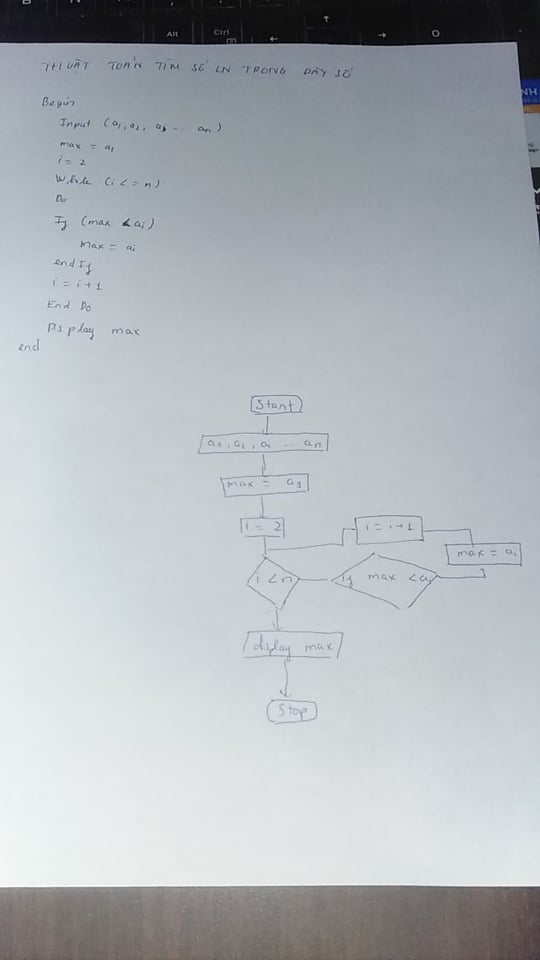 Alt Ctrl
THUẬT TOÁN TÌM SỐ LN TRONG DÃY SỐ
NH
Begin
Input (a1, a2, ai ... an)
max = a1
i = 2
While (i <= n)
Do
If (max < ai)
max = ai
end If
i = i + 1
End Do
Display max
end
Start
a1, a2, ai ... an
max = a1
i = 2
i = i + 1
max = ai
i < n
If max < ai
dsplay max
Stop